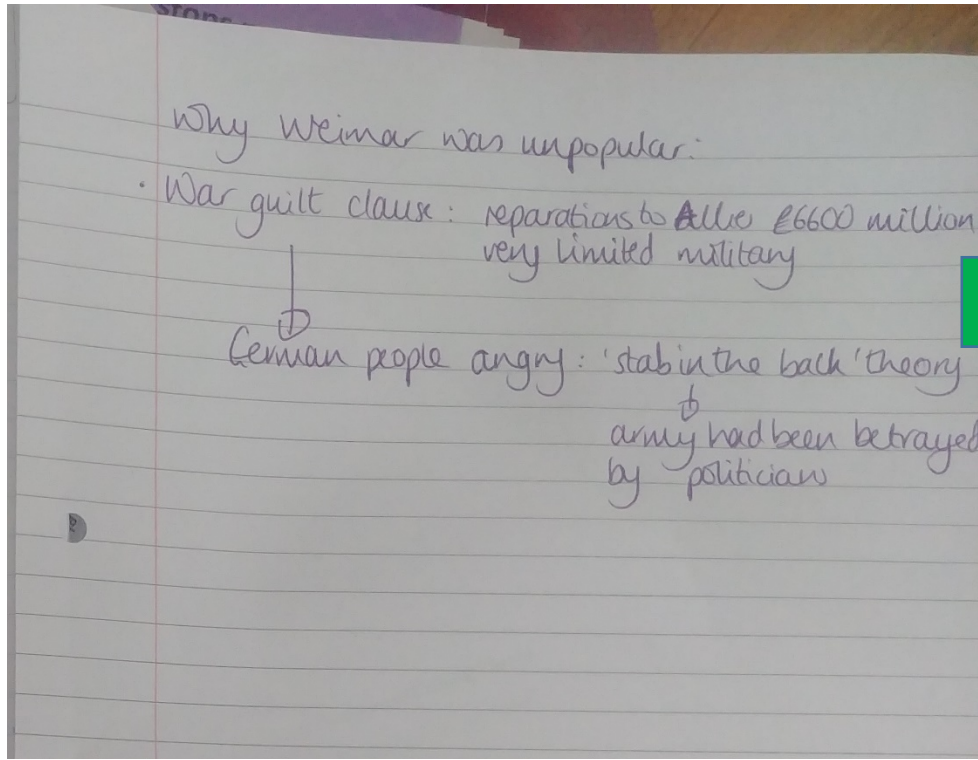 Why Weimar was unpopular:
· War guilt clause: reparations to Allie £6600 million
very limited military
German people angry: 'stab in the back' theory
army had been betrayed
by politicians